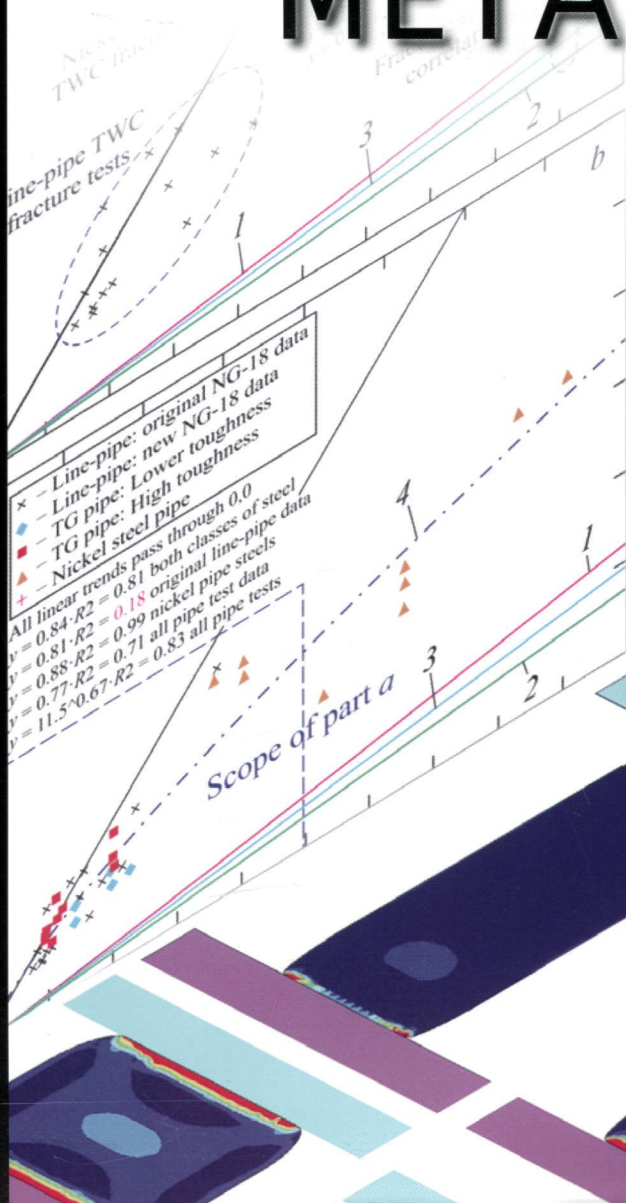 META
Nicke
TWC fractu
Frac
correlat
ine-pipe TWC
fracture tests
3
2
1
b
× – Line-pipe: original NG-18 data
– Line-pipe: new NG-18 data
– TG pipe: Lower toughness
– TG pipe: High toughness
+ – Nickel steel pipe
All linear trends pass through 0.0
y = 0.84·R2 = 0.81 both classes of steel
y = 0.81·R2 = 0.18 original line-pipe data
y = 0.88·R2 = 0.99 nickel pipe steels
y = 0.77·R2 = 0.71 all pipe test data
y = 11.5^0.67·R2 = 0.83 all pipe tests
4
1
3
2
Scope of part a